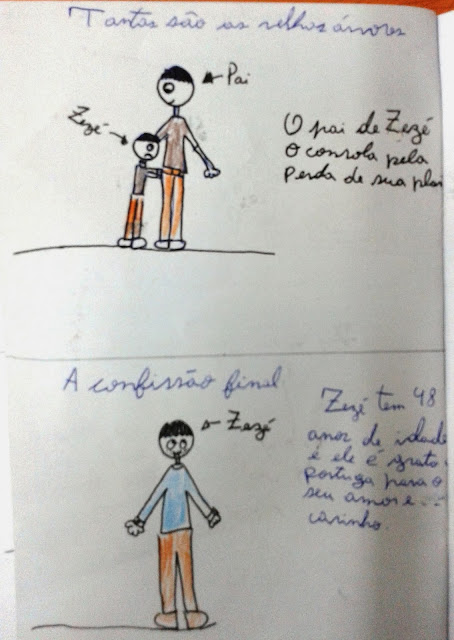 Tantas são as velhas árvores
Pai
Zezé
O pai de Zezé
O consola pela
Perda de sua plan
A confissão final
Zezé
Zezé tem 48
anos de idade
e ele é grato
portuga para o
seu amor e
carinho.